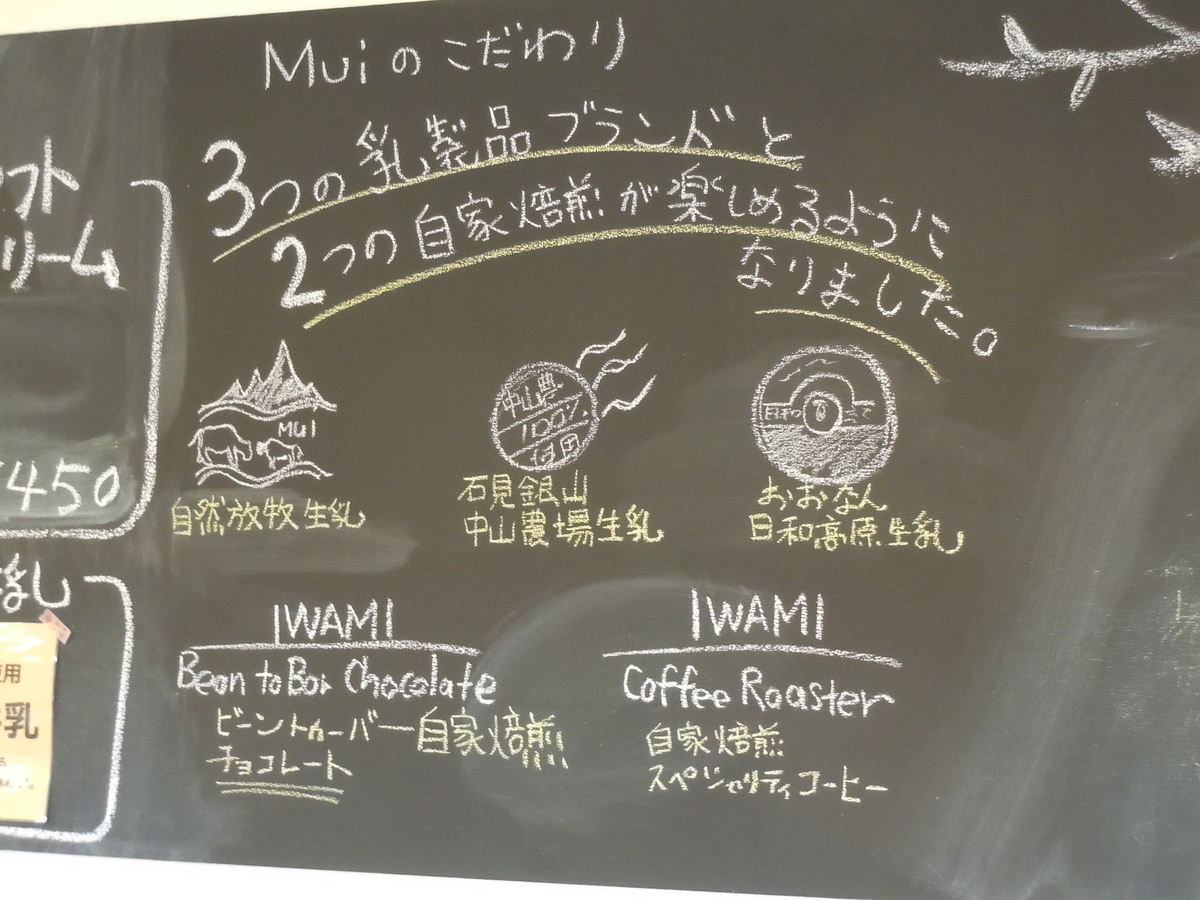 Muiのこだわり
3つの乳製品ブランドと
2つの自家焙煎が楽しめるように
なりました。
MUI
自然放牧生乳
中山農
100%
使用
石見銀山
中山農場生乳
おおなん
日和高原生乳
IWAMI
Bean to Bar Chocolate
ビーントゥーバー自家焙煎
チョコレート
IWAMI
Coffee Roaster
自家焙煎
スペシャリティコーヒー
フト
リーム
¥450
使用
乳